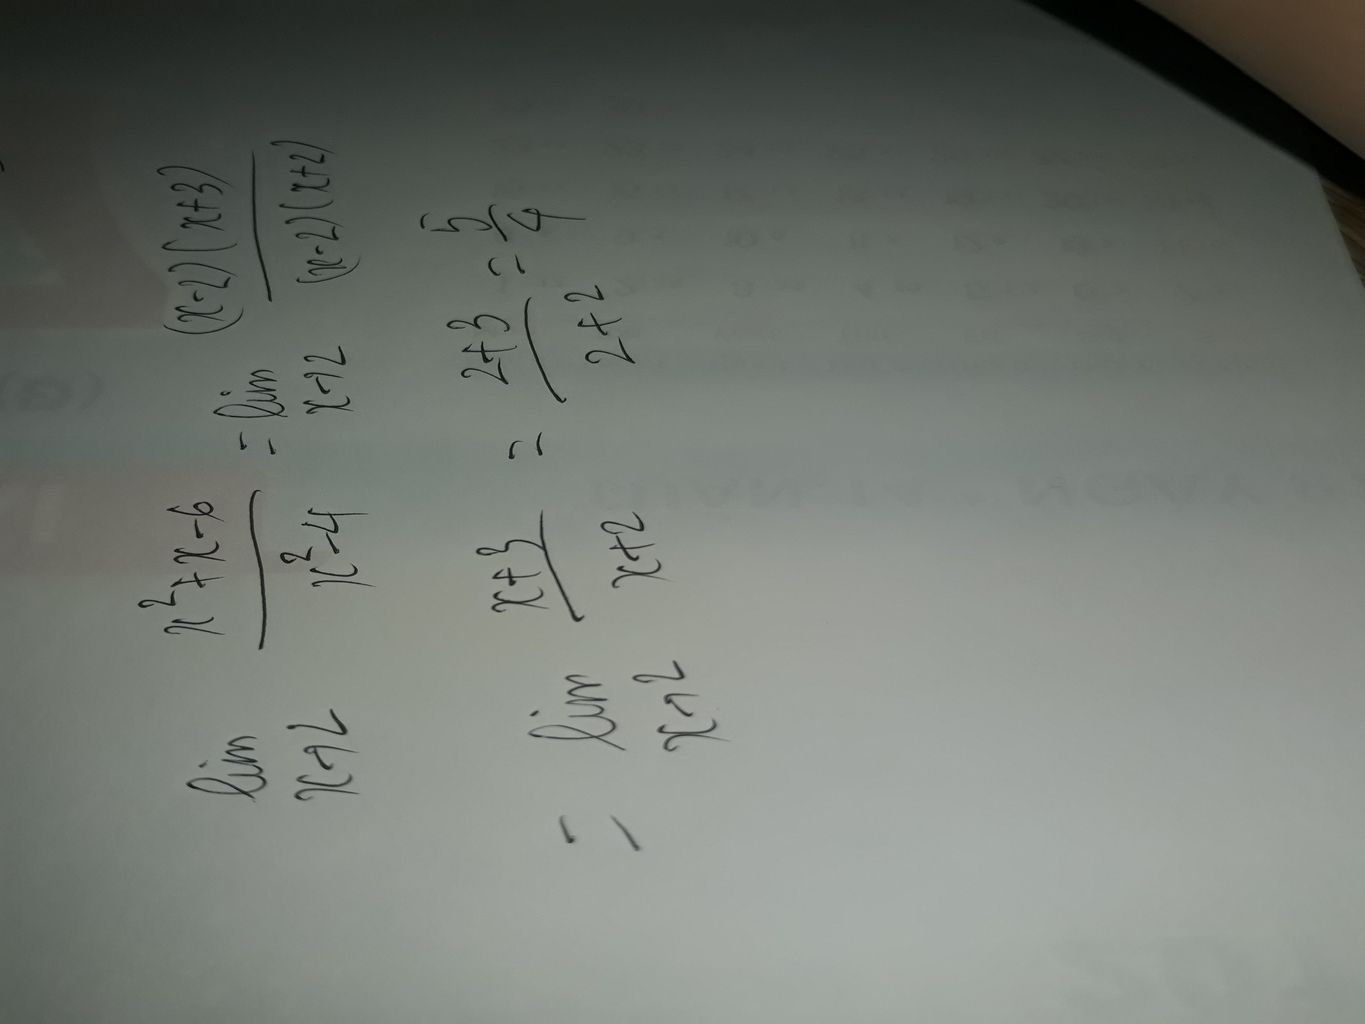 lim x→2 x²+x-6 / x²-4 = lim x→2 (x-2)(x+3) / (x-2)(x+2)
= lim x→2 x+3 / x+2 = 2+3 / 2+2 = 5/4